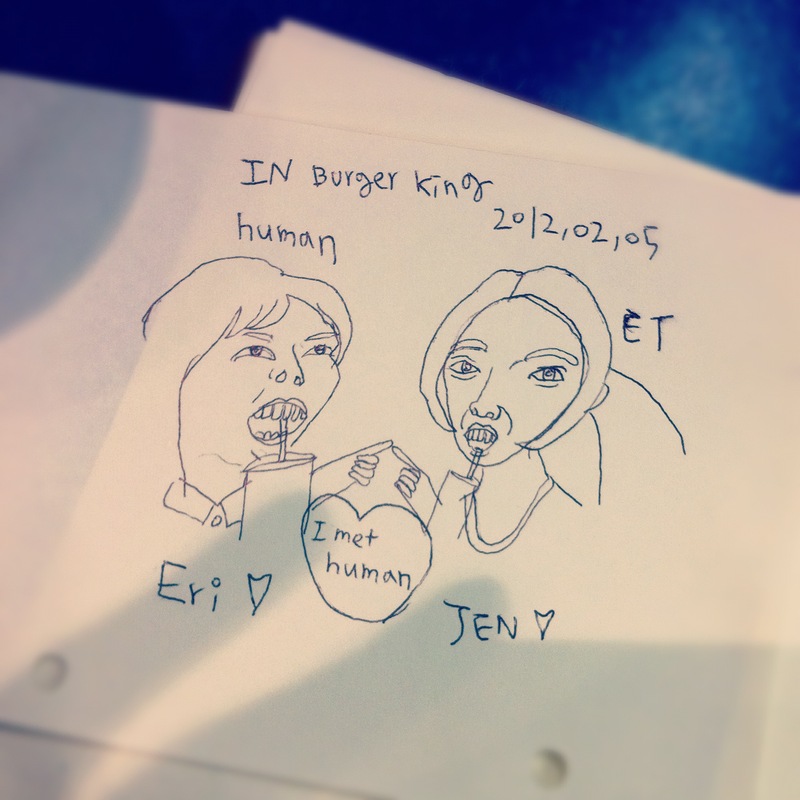 IN Burger king
2012,02,05
human
ET
I met
human
Eri ♡
JEN ♡